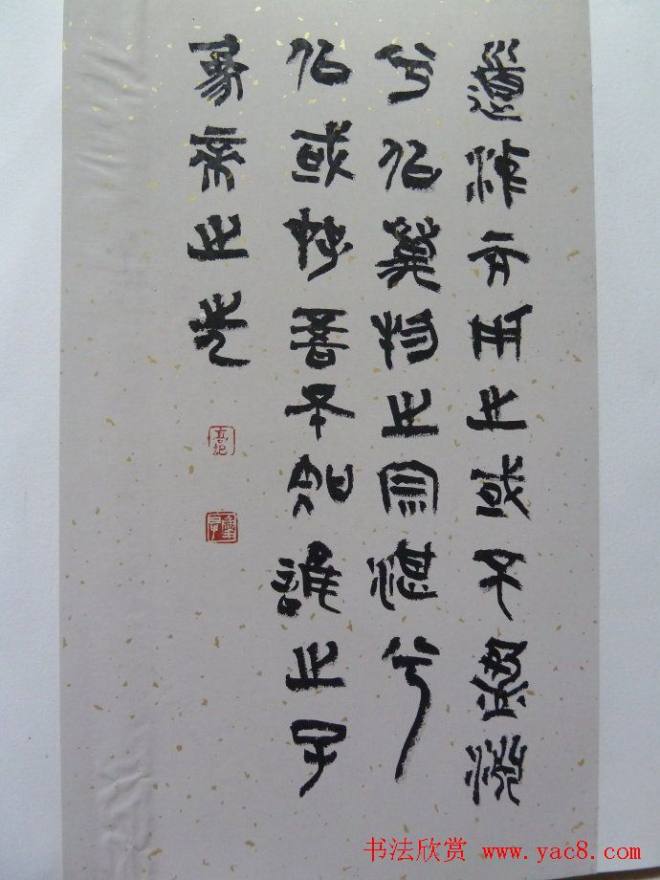 道沖而用之或不盈淵
兮似萬物之宗湛兮
似或存吾不知誰之子
象帝之先
书法欣赏 www.yac8.com